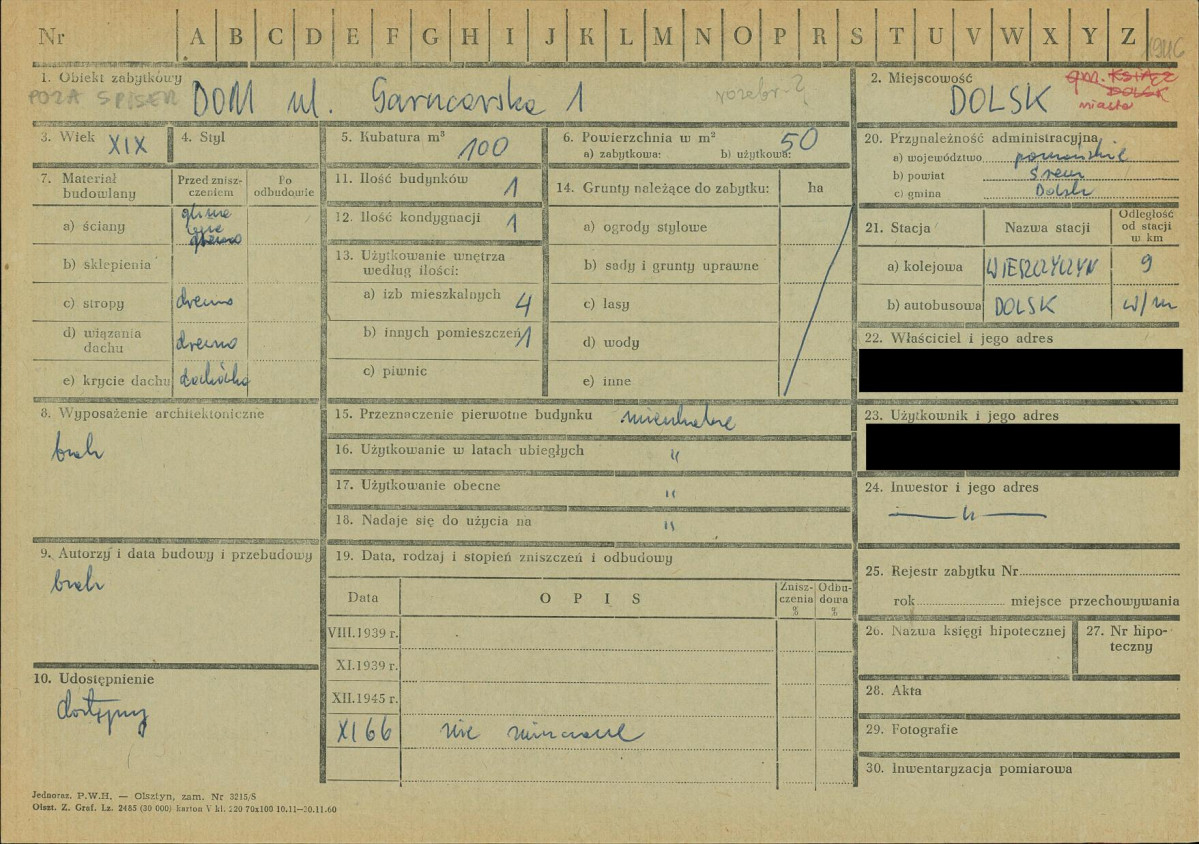 Nr A B C D E F G H I J K L M N O P R S T U V W X Y Z
1. Obiekt zabytkowy DOM ul. Garncarska 1 rozebr.?
POZA SPISEM
2. Miejscowość DOLSK
gm. KSIĄŻ
DOLSK
miasto
3. Wiek XIX
4. Styl
5. Kubatura m³ 100
6. Powierzchnia w m² 50
a) zabytkowa: b) użytkowa:
7. Materiał budowlany
Przed znisz-
czeniem
Po
odbudowie
a) ściany glina
drewno
b) sklepienia
c) stropy drewno
d) wiązania
dachu drewno
e) krycie dachu dachówka
8. Wyposażenie architektoniczne
brak
9. Autorzy i data budowy i przebudowy
brak
10. Udostępnienie
dostępny
11. Ilość budynków 1
12. Ilość kondygnacji 1
13. Użytkowanie wnętrza
według ilości:
a) izb mieszkalnych 4
b) innych pomieszczeń 1
c) piwnic
14. Grunty należące do zabytku: ha
a) ogrody stylowe
b) sady i grunty uprawne
c) lasy
d) wody
e) inne
15. Przeznaczenie pierwotne budynku mieszkalne
16. Użytkowanie w latach ubiegłych "
17. Użytkowanie obecne "
18. Nadaje się do użycia na "
19. Data, rodzaj i stopień zniszczeń i odbudowy
Data OPIS Znisz-
czenia
% Odbu-
dowa
%
VIII.1939 r.
XI.1939 r.
XII.1945 r.
XI 66 nie niszczone
20. Przynależność administracyjna
a) województwo poznańskie
b) powiat Śrem
c) gmina Dolsk
21. Stacja Nazwa stacji Odległość
od stacji
w km
a) kolejowa WIERZCZYCZYN 9
b) autobusowa DOLSK w/m
22. Właściciel i jego adres
23. Użytkownik i jego adres
24. Inwestor i jego adres
— " —
25. Rejestr zabytku Nr
rok miejsce przechowywania
26. Nazwa księgi hipotecznej
27. Nr hipo-
teczny
28. Akta
29. Fotografie
30. Inwentaryzacja pomiarowa
Jednoraz. P.W.H. — Olsztyn, zam. Nr 3215/S
Olszt. Z. Graf. Lz. 2485 (30 000) karton V kl. 220 70x100 10.11—30.11.60